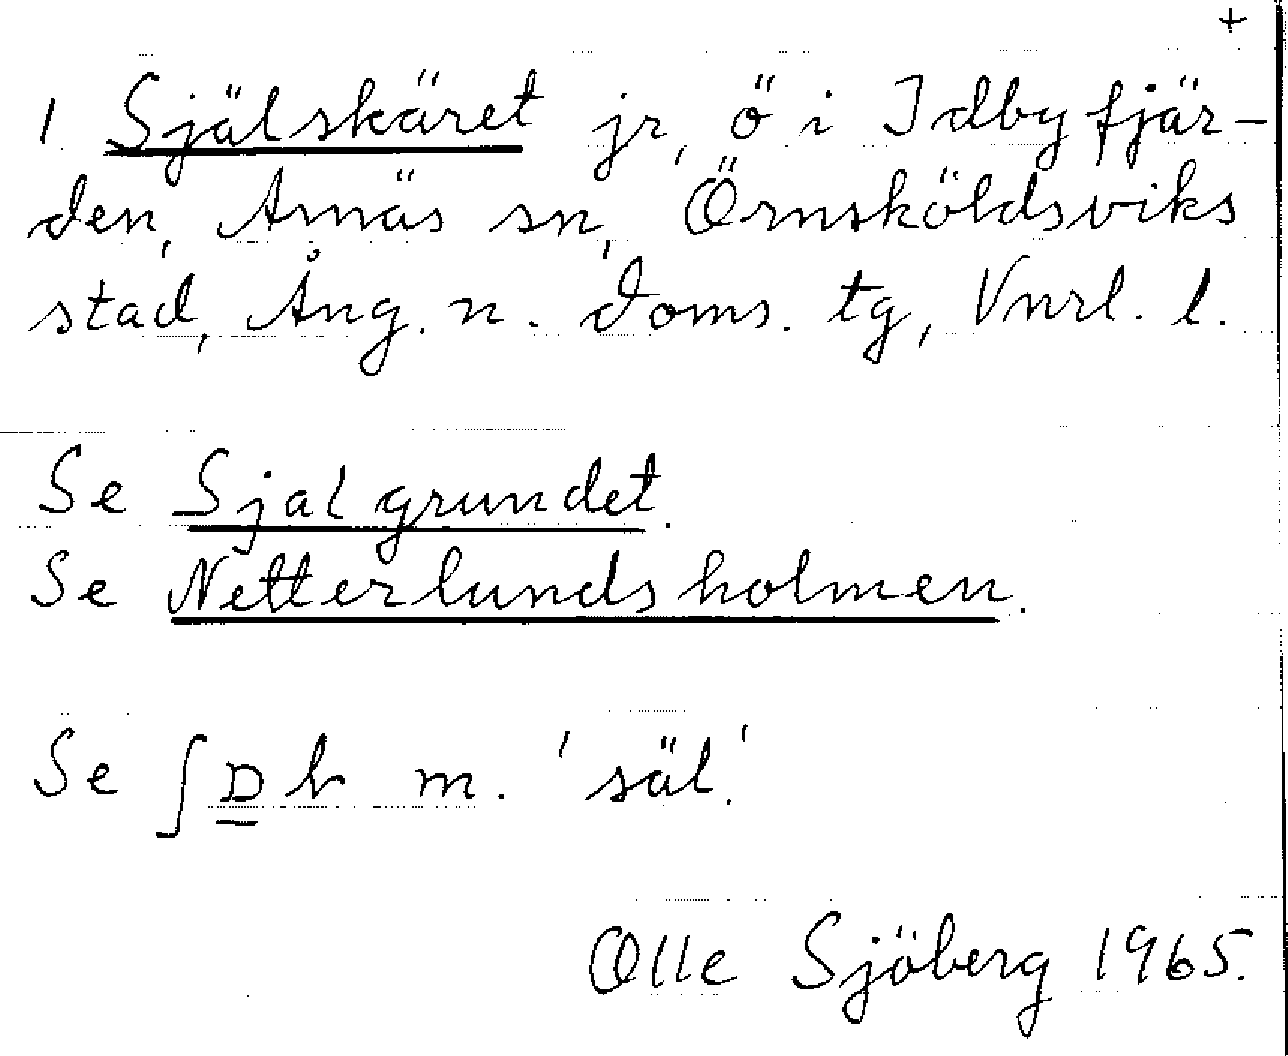 +
1. Själskäret jr, ö i Idbyfjär-
den, Arnäs sn, Örnsköldsviks
stad, Ång. n. doms. tg, Vnrl. l.
Se Sjalgrundet.
Se Netterlundsholmen.
Se m. 'säl'.
Olle Sjöberg 1965.